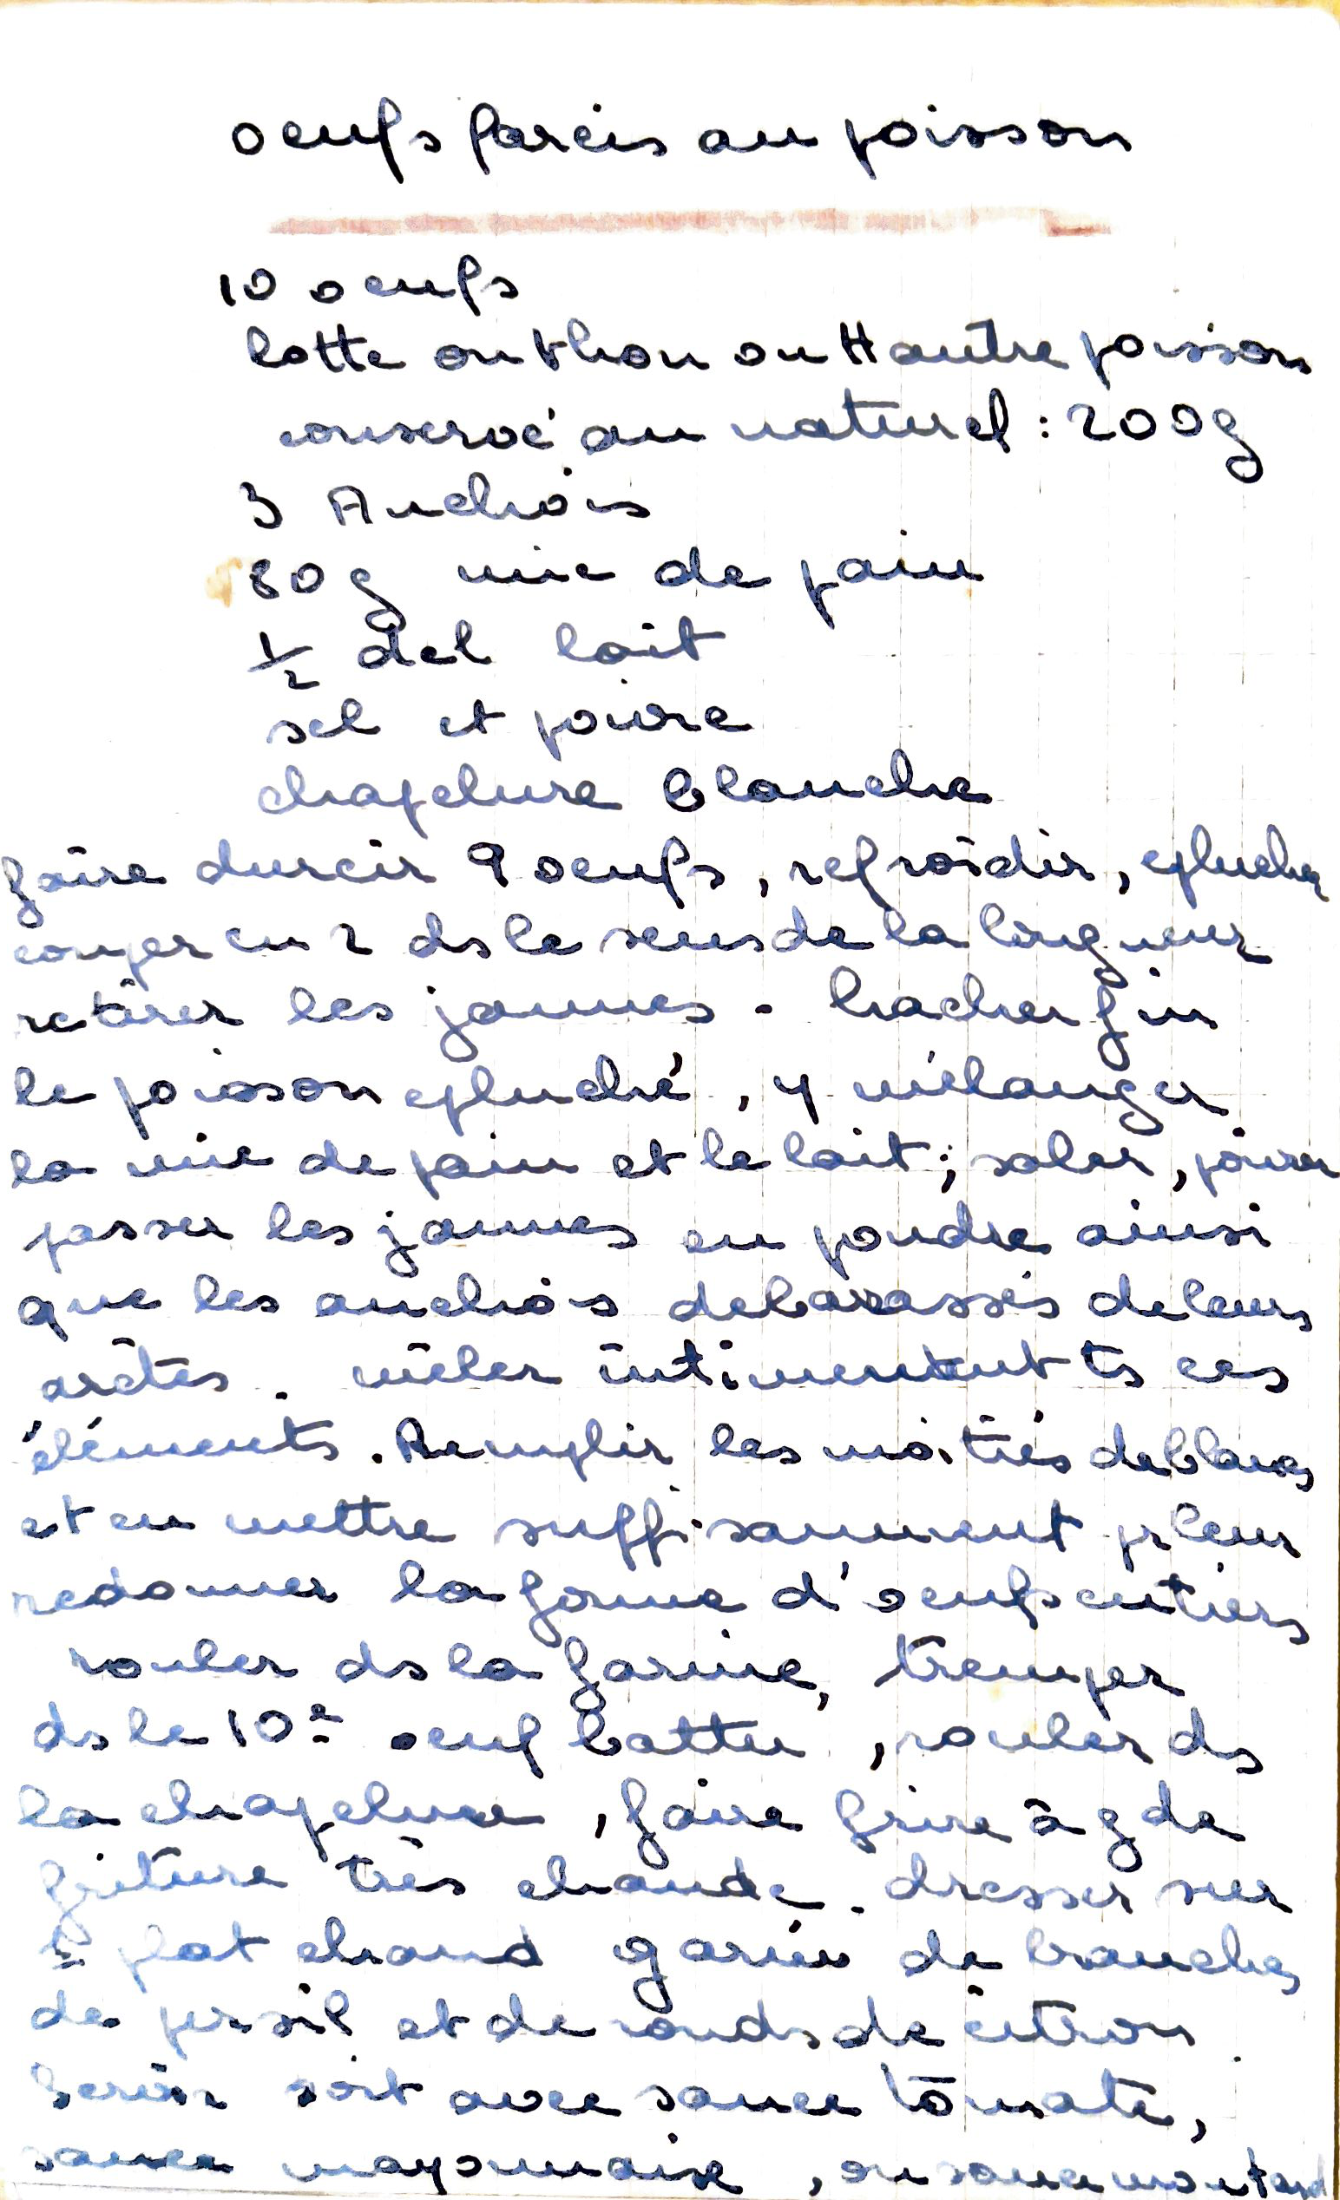 oeufs farcis au poisson
10 oeufs
lotte ou thon ou autre poisson
conservé au naturel : 200g
3 Anchois
80g mie de pain
1/2 del lait
sel et poivre
chapelure blanche
faire durcir 9 oeufs, refroidir, eplucher
couper en 2 ds le sens de la longueur
retirer les jaunes. hacher fin
le poisson epluché, y mélanger
la mie de pain et le lait; saler, poivrer
passer les jaunes en poudre ainsi
que les anchois debarassés de leurs
arêtes. mêler intimement ts ces
éléments. Remplir les moitiés de blancs
et en mettre suffisamment pr leur
redonner la forme d'oeufs entiers
rouler ds la farine, tremper
ds le 10e oeuf battu, rouler ds
la chapelure, faire frire à gde
friture très chaude. dresser sur
1 plat chaud garni de branches
de persil et de ronds de citron.
Servir soit avec sauce tomate,
sauce mayonnaise, ou sauce moutard